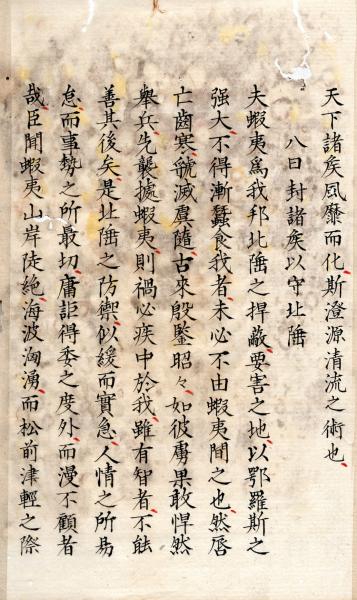 天下諸矦風靡而化斯澄源清流之術也
八曰封諸矦以守北陲
夫蝦夷爲我邦北陲之捍蔽要害之地以鄂羅斯之
强大不得漸蠶食我者未必不由蝦夷間之也然唇
亡齒寒虢滅虞隨古來殷鑒昭々如彼虜果敢悍然
舉兵先襲據蝦夷則禍心疾中於我雖有智者不能
善其後矣是北陲之防禦似緩而實急人情之所易
怠而事勢之所最切庸詎得委之度外而漫不顧者
哉臣聞蝦夷山岸陡絶海波洶湧而松前津輕之際